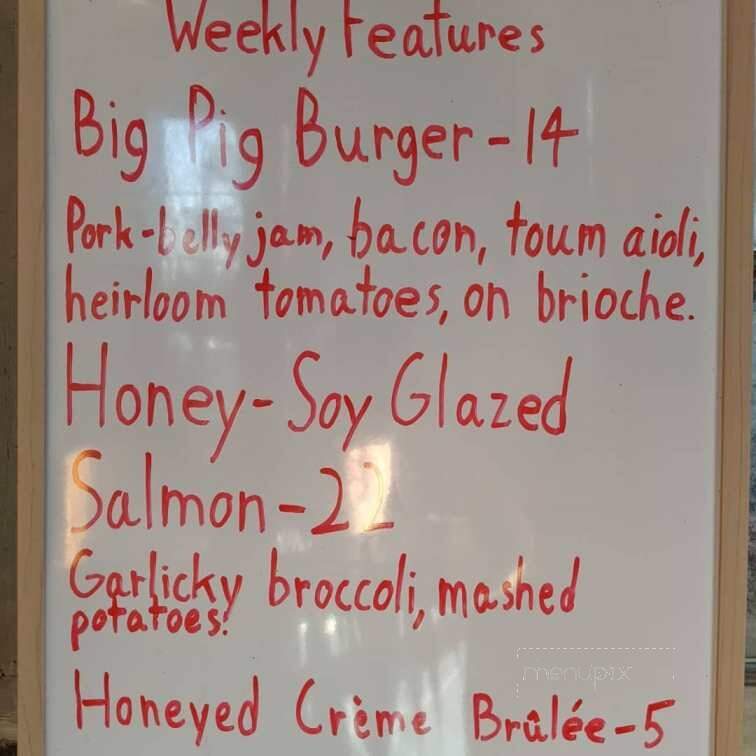 Weekly Features
Big Pig Burger - 14
Pork-belly jam, bacon, toum aioli,
heirloom tomatoes, on brioche.
Honey-Soy Glazed
Salmon - 22
Garlicky broccoli, mashed
potatoes!
menupix
Honeyed Crème Brûlée - 5